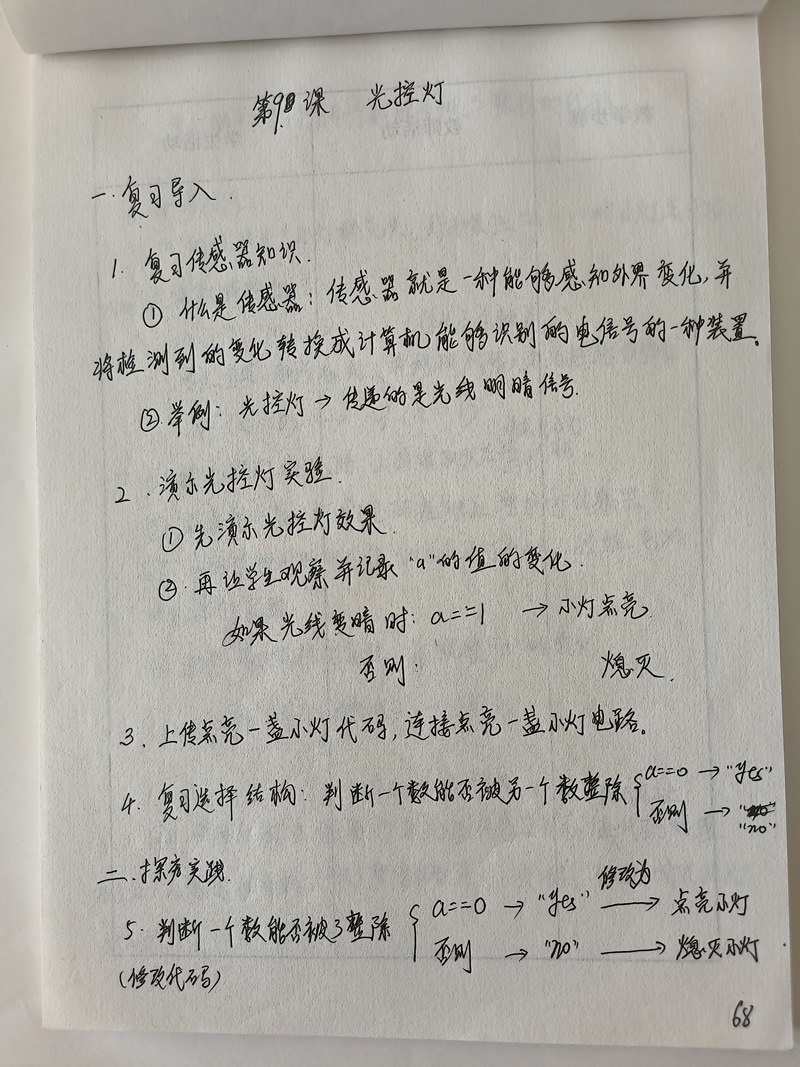 第9课 光控灯
一.复习导入.
1. 复习传感器知识.
① 什么是传感器：传感器就是一种能够感知外界变化,并
将检测到的变化转换成计算机能够识别的电信号的一种装置。
②.举例：光控灯→传递的是光线明暗信号.
2.演示光控灯实验.
①先演示光控灯效果.
②.再让学生观察并记录"a"的值的变化.
如果光线变暗时：a==1 →小灯点亮.
否则： 熄灭.
3.上传点亮一盏小灯代码,连接点亮一盏小灯电路。
4. 复习选择结构：判断一个数能否被另一个数整除 { a==0 → "yes"
否则 → "no"
二.探究实践.
5. 判断一个数能否被3整除 { a==0 → "yes" 修改为→ 点亮小灯
(修改代码) 否则 → "no" → 熄灭小灯
68